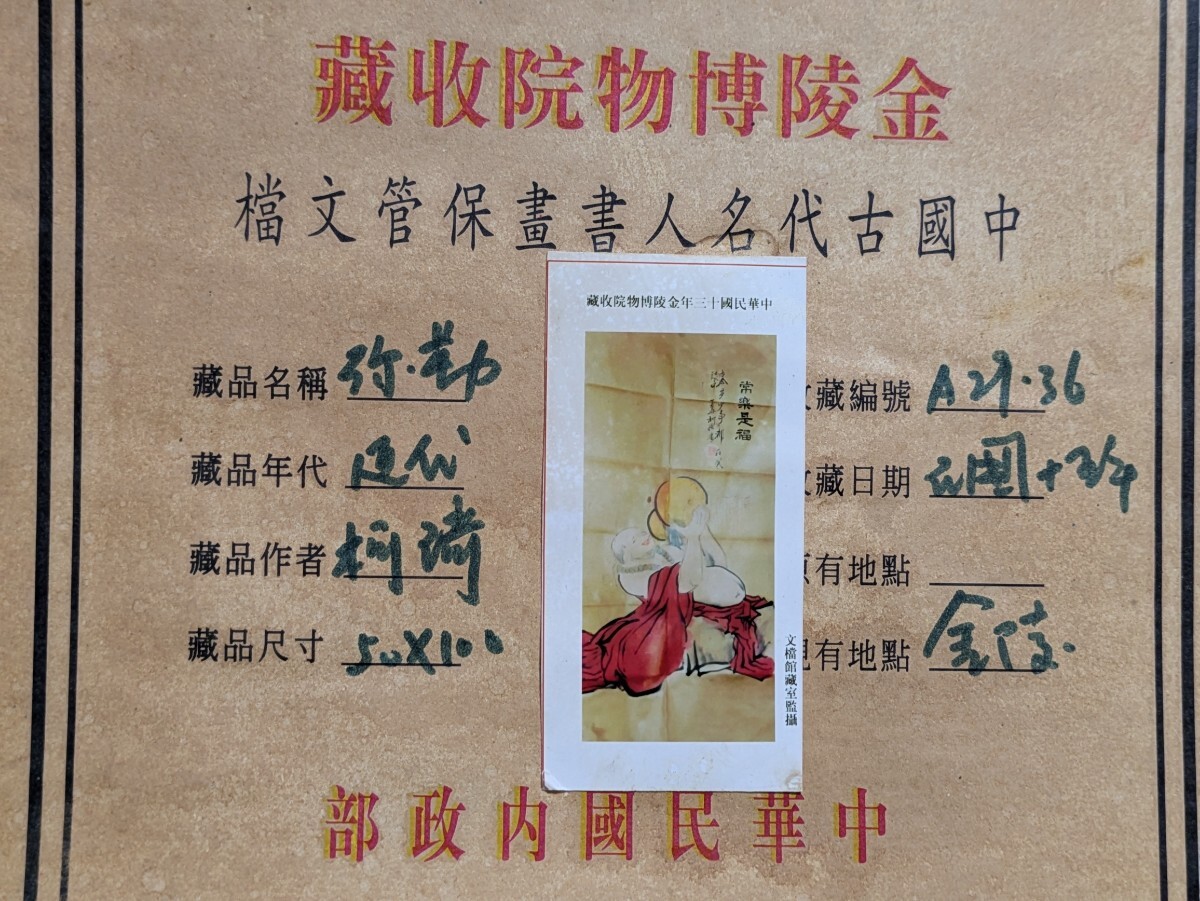 金陵博物院收藏
中國古代名人書畫保管文檔
藏品名稱 弥勒
藏品年代 近代
藏品作者 柯
藏品尺寸 50X100
中華民國十三年金陵博物院收藏
常樂是福
文檔館藏室監攝
收藏編號
收藏日期 民國十五年
原有地點
現有地點 金陵
中華民國内政部